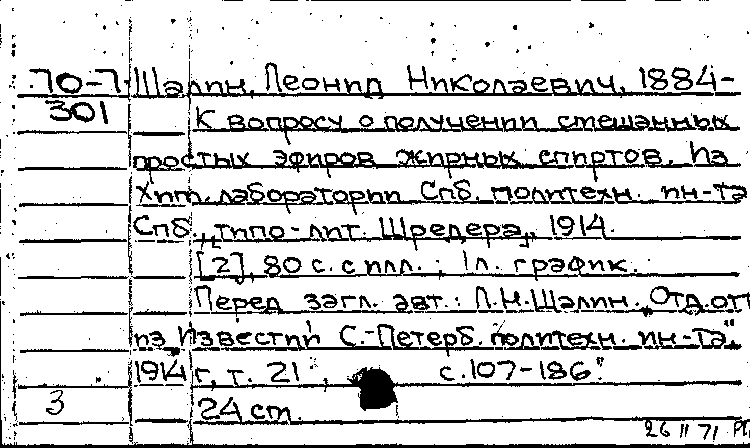 70-7 Шалин, Леонид Николаевич, 1884-
301 К вопросу о получении смешанных
простых эфиров жирных спиртов. Из
Хим. лаборатории Спб. политехн. ин-та
Спб., "типо-лит. Шредера", 1914.
[2], 80 с. с илл.; 1 л. график.
Перед загл. авт.: Л.Н. Шалин. "Отд. отт
из Известий С.-Петерб. политехн. ин-та",
1914 г, т. 21", с. 107-186."
3 24 см.
26 II 71